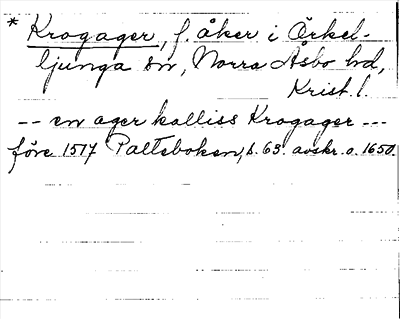 * Krogager, f. åker i Örkel-
ljunga sn, Norra Åsbo hd,
Krist. l.
-- en ager kalliss Krogager ---
före 1517 Palteboken, s. 63. avskr. o. 1650.